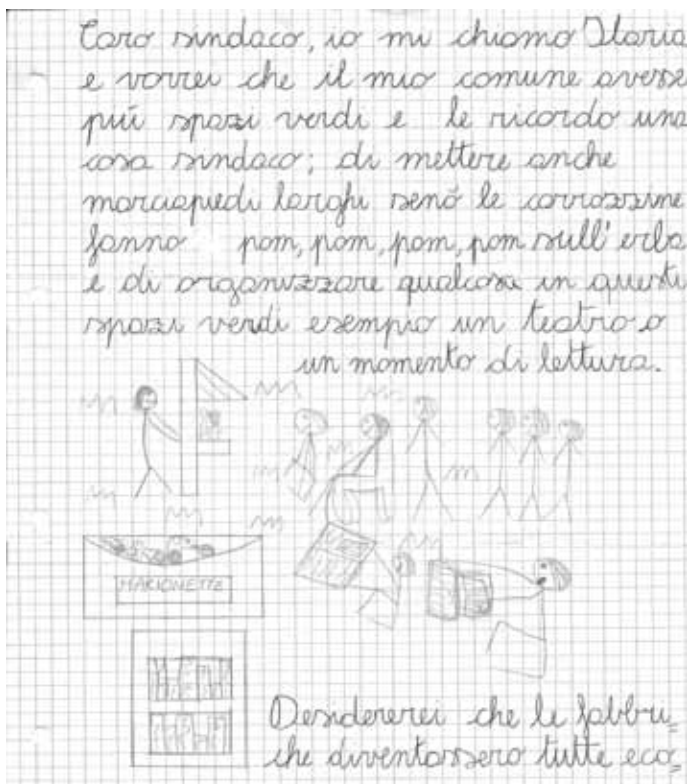 Caro sindaco, io mi chiamo Ilaria
e vorrei che il mio comune avesse
più spazi verdi e le ricordo una
cosa sindaco; di mettere anche
marciapiedi larghi senó le carrozzine
fanno pom, pom, pom, pom sull'erba
e di organizzare qualcosa in questi
spazi verdi esempio un teatro o
un momento di lettura.
MARIONETTE
Desidererei che le fabbri=
che diventassero tutte eco=